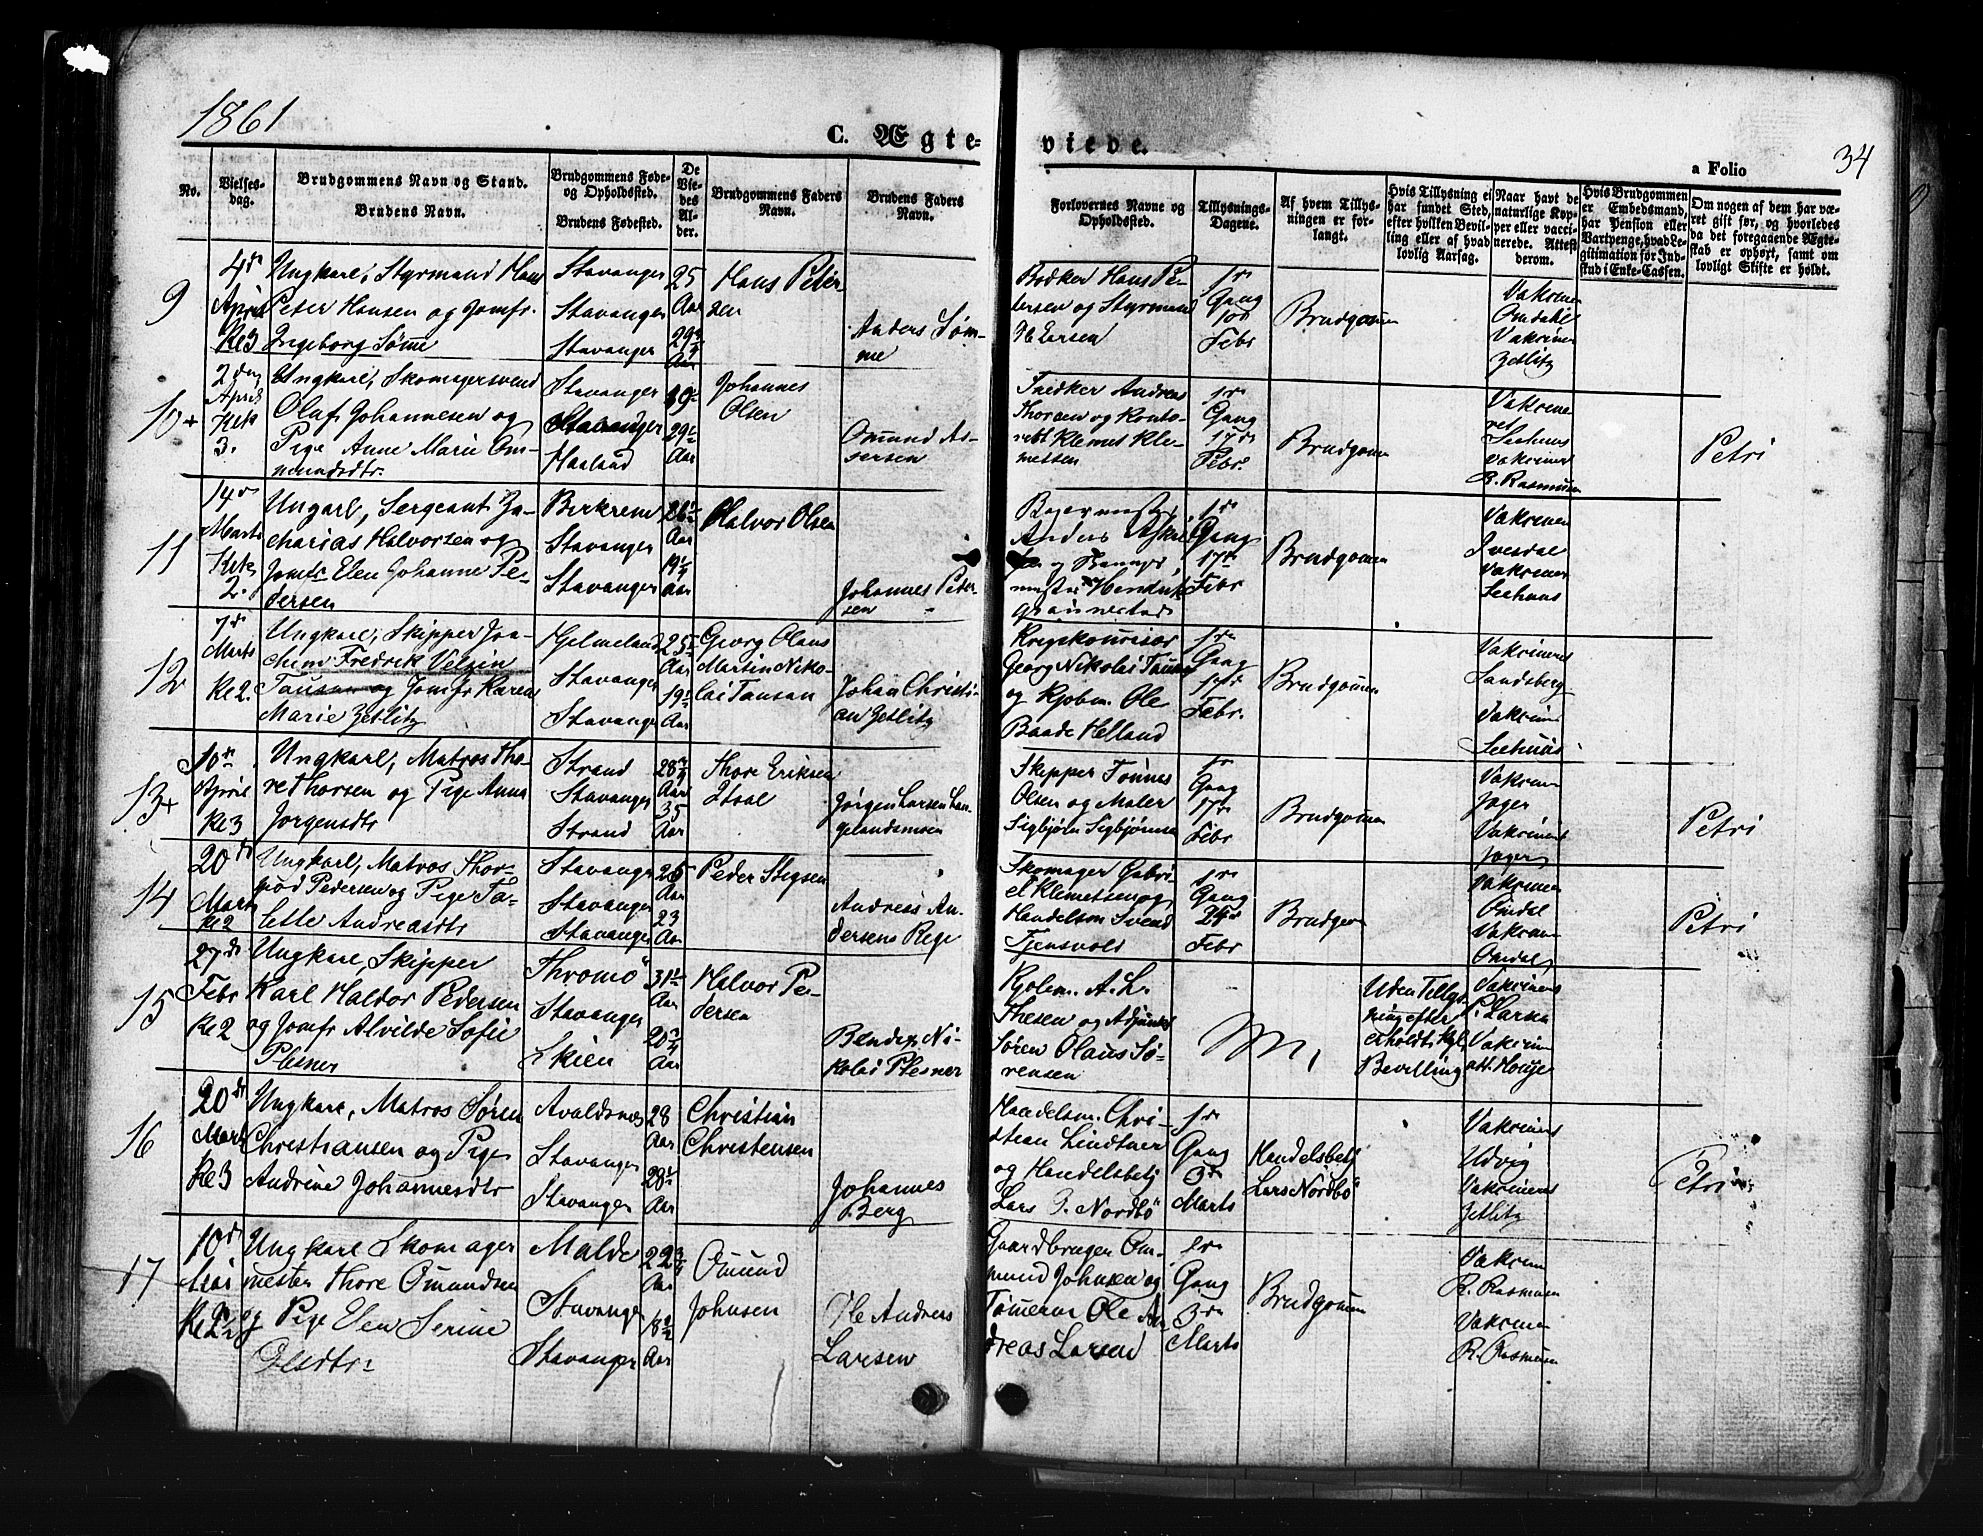 1861
C. Ægte-
viede.
a Folio
34
No.
Vielses-
dag.
Brudgommens Navn og Stand.
Brudens Navn.
Brudgommens Føde-
og Opholdssted.
Brudens Fødested.
De
Vie-
des
Al-
der.
Brudgommens Faders
Navn.
Brudens Faders
Navn.
Forlovernes Navne og
Opholdssted.
Tillysnings-
Dagene.
Af hvem Tillys-
ningen er for-
langt.
Hvis Tillysning ei
har fundet Sted,
efter hvilken Bevil-
ling eller af hvad
lovlig Aarsag.
Naar havt de
naturlige Kop-
per eller vacci-
nerede. Attest
derom.
Hvis Brudgommen
er Embedsmand,
har Pension eller
Vartpenge, hvad Le-
gitimation for Ind-
skud i Enke-Cassen.
Om nogen af dem har væ-
ret gift før, og hvorledes
da det foregaaende Ægte-
skab er ophørt, samt om
lovligt Skifte er holdt.
9
4de
April
Kl 3
Ungkarl, Styrmand Hans
Peter Hansen og Jomfr.
Ingeborg Sømme
Stavanger
Stavanger
Stavanger
25
Aar
29 3/4
Aar
Hans Peter
sen
Anders Søm-
me
Bødker Hans Pe-
tersen og Styrmand
1ste
Gang
10de
Febr
Brudgomen
Vakcinen
Omdahl
Vakcinen
Zetlitz
10+
2den
April
Kirk
3.
Ungkarl, Skomagersvend
Oluf Johannesen og
Pige Anne Marie Om-
mundsdtr.
Stavanger
Stavanger
Haaland
19
29 1/2
Aar
Johannes
Olsen
Omund As-
sersen
Snedker Andreas
Thorsen og Konto-
rist Klemet Kle-
metsen
1ste
Gang
17de
Febr.
Brudgomen
Vakcine
ret
Seehuus
Vakcineret
R. Rasmusen
Petri
11
14de
Marts
Kirke
2.
Ungarl, Sergeant Za-
charias Halvorsen og
Jomfr Elen Johanne Pe-
dersen
Birkrem
Stavanger
Stavanger
26 1/2
Aar
19 1/2
Aar
Halvor Olsen
Johannes Peter-
sen
Anders
Henrik
Grannestad
1ste
Gang
17de
Febr
Brudgomen
Vakcinen
Ivesdal
Vakcinen
Seehuus
12
7de
Marts
Kl 2.
Ungkarl, Skipper Joa-
chim Fredrik Velsin
Tausan og Jomfr Karen
Marie Zetlitz
Hjelmeland
Stavanger
Stavanger
25
Aar
19
Aar
Georg Olaus
Martin Niko-
lai Tausan
Johan Christi-
an Zetlitz
Krigskommisær
Georg Nikolai Tausan
og Kjøbm. Ole
Baade Helland
1ste
Gang
17de
Febr.
Brudgomen
Vakcineret
Landsberg
Vakcinen
Seehuus
13+
10de
April
Kl 3
Ungkarl, Matros Tho-
re Thorsen og Pige Anna
Jørgensdtr
Strand
Stavanger
Strand
28 3/4
Aar
35
Aar
Thore Eriksen
Jørgen Larsen Lan-
gelandsmoen
Skipper Tønnes
Olsen og Maler
Sigbjørn Sigbjørnsen
1ste
Gang
17de
Febr
Brudgomen
Vakcinen
Jager
Vakcineret
Jager
Petri
14
20de
Marts
Kl 2
Ungkarl, Matros Thor-
mod Pedersen og Pige Ta-
lette Andreasdtr
Stavanger
Stavanger
Stavanger
25
Aar
23
Aar
Peder Stigsen
Andreas An-
dersens Rege
Skomager Gabri-
el Klemetsen og
Handelsm Svend
Tjensvold
1ste
Gang
24de
Febr
Brudgom
Vakcinen
Omdal
Vakcinen
Omdal
Petri
15
27de
Febr
Kl 2
Ungkarl, Skipper
Karl Haldor Pedersen
og Jomfr Alvilde Sofie
Plesner
Thromö
Stavanger
Skien
31 1/2
Aar
20 3/4
Aar
Halvor Pe-
dersen
Bendix Ni-
kolai Plesner
Kjøbm. A. L.
Thesen og Adjunkt
Søren Olaus Sø-
rensen
Uden Tillys-
ning efter
erholdt Kgl.
Bevilling
Vakcinens
C. Larsen
Vakcinen
att. Houge
16
20de
Marts
Kl 3
Ungkarl, Matros Søren
Christiansen og Pige
Andrine Johannesdtr
Avaldsnes
Stavanger
Stavanger
28
Aar
28 1/2
Aar
Christian
Christensen
Johannes
Berg
Handelsm. Chri-
stian Lindtner
og Handelsbetj
Lars P. Nordbö
1ste
Gang
3de
Marts
Handelsbetj
Lars Nordbö
Vakcinens
Udvig
Vakcinens
Zetlitz
Petri
17
10de
Mai
Kl 2 1/2
Ungkarl Skomager
mester Thore Omundsen
og Pige Elen Serine
Olsdtr
Malde
Stavanger
Stavanger
22 3/4
Aar
18 1/2
Aar
Omund
Johnsen
Ole Andreas
Larsen
Gaardbruger Om-
mund Johnsen og
Tømerm Ole An
dreas Larsen
1ste
Gang
3de
Marts
Brudgomen
Vakcinen
R. Rasmusen
Vakcinen
R. Rasmusen